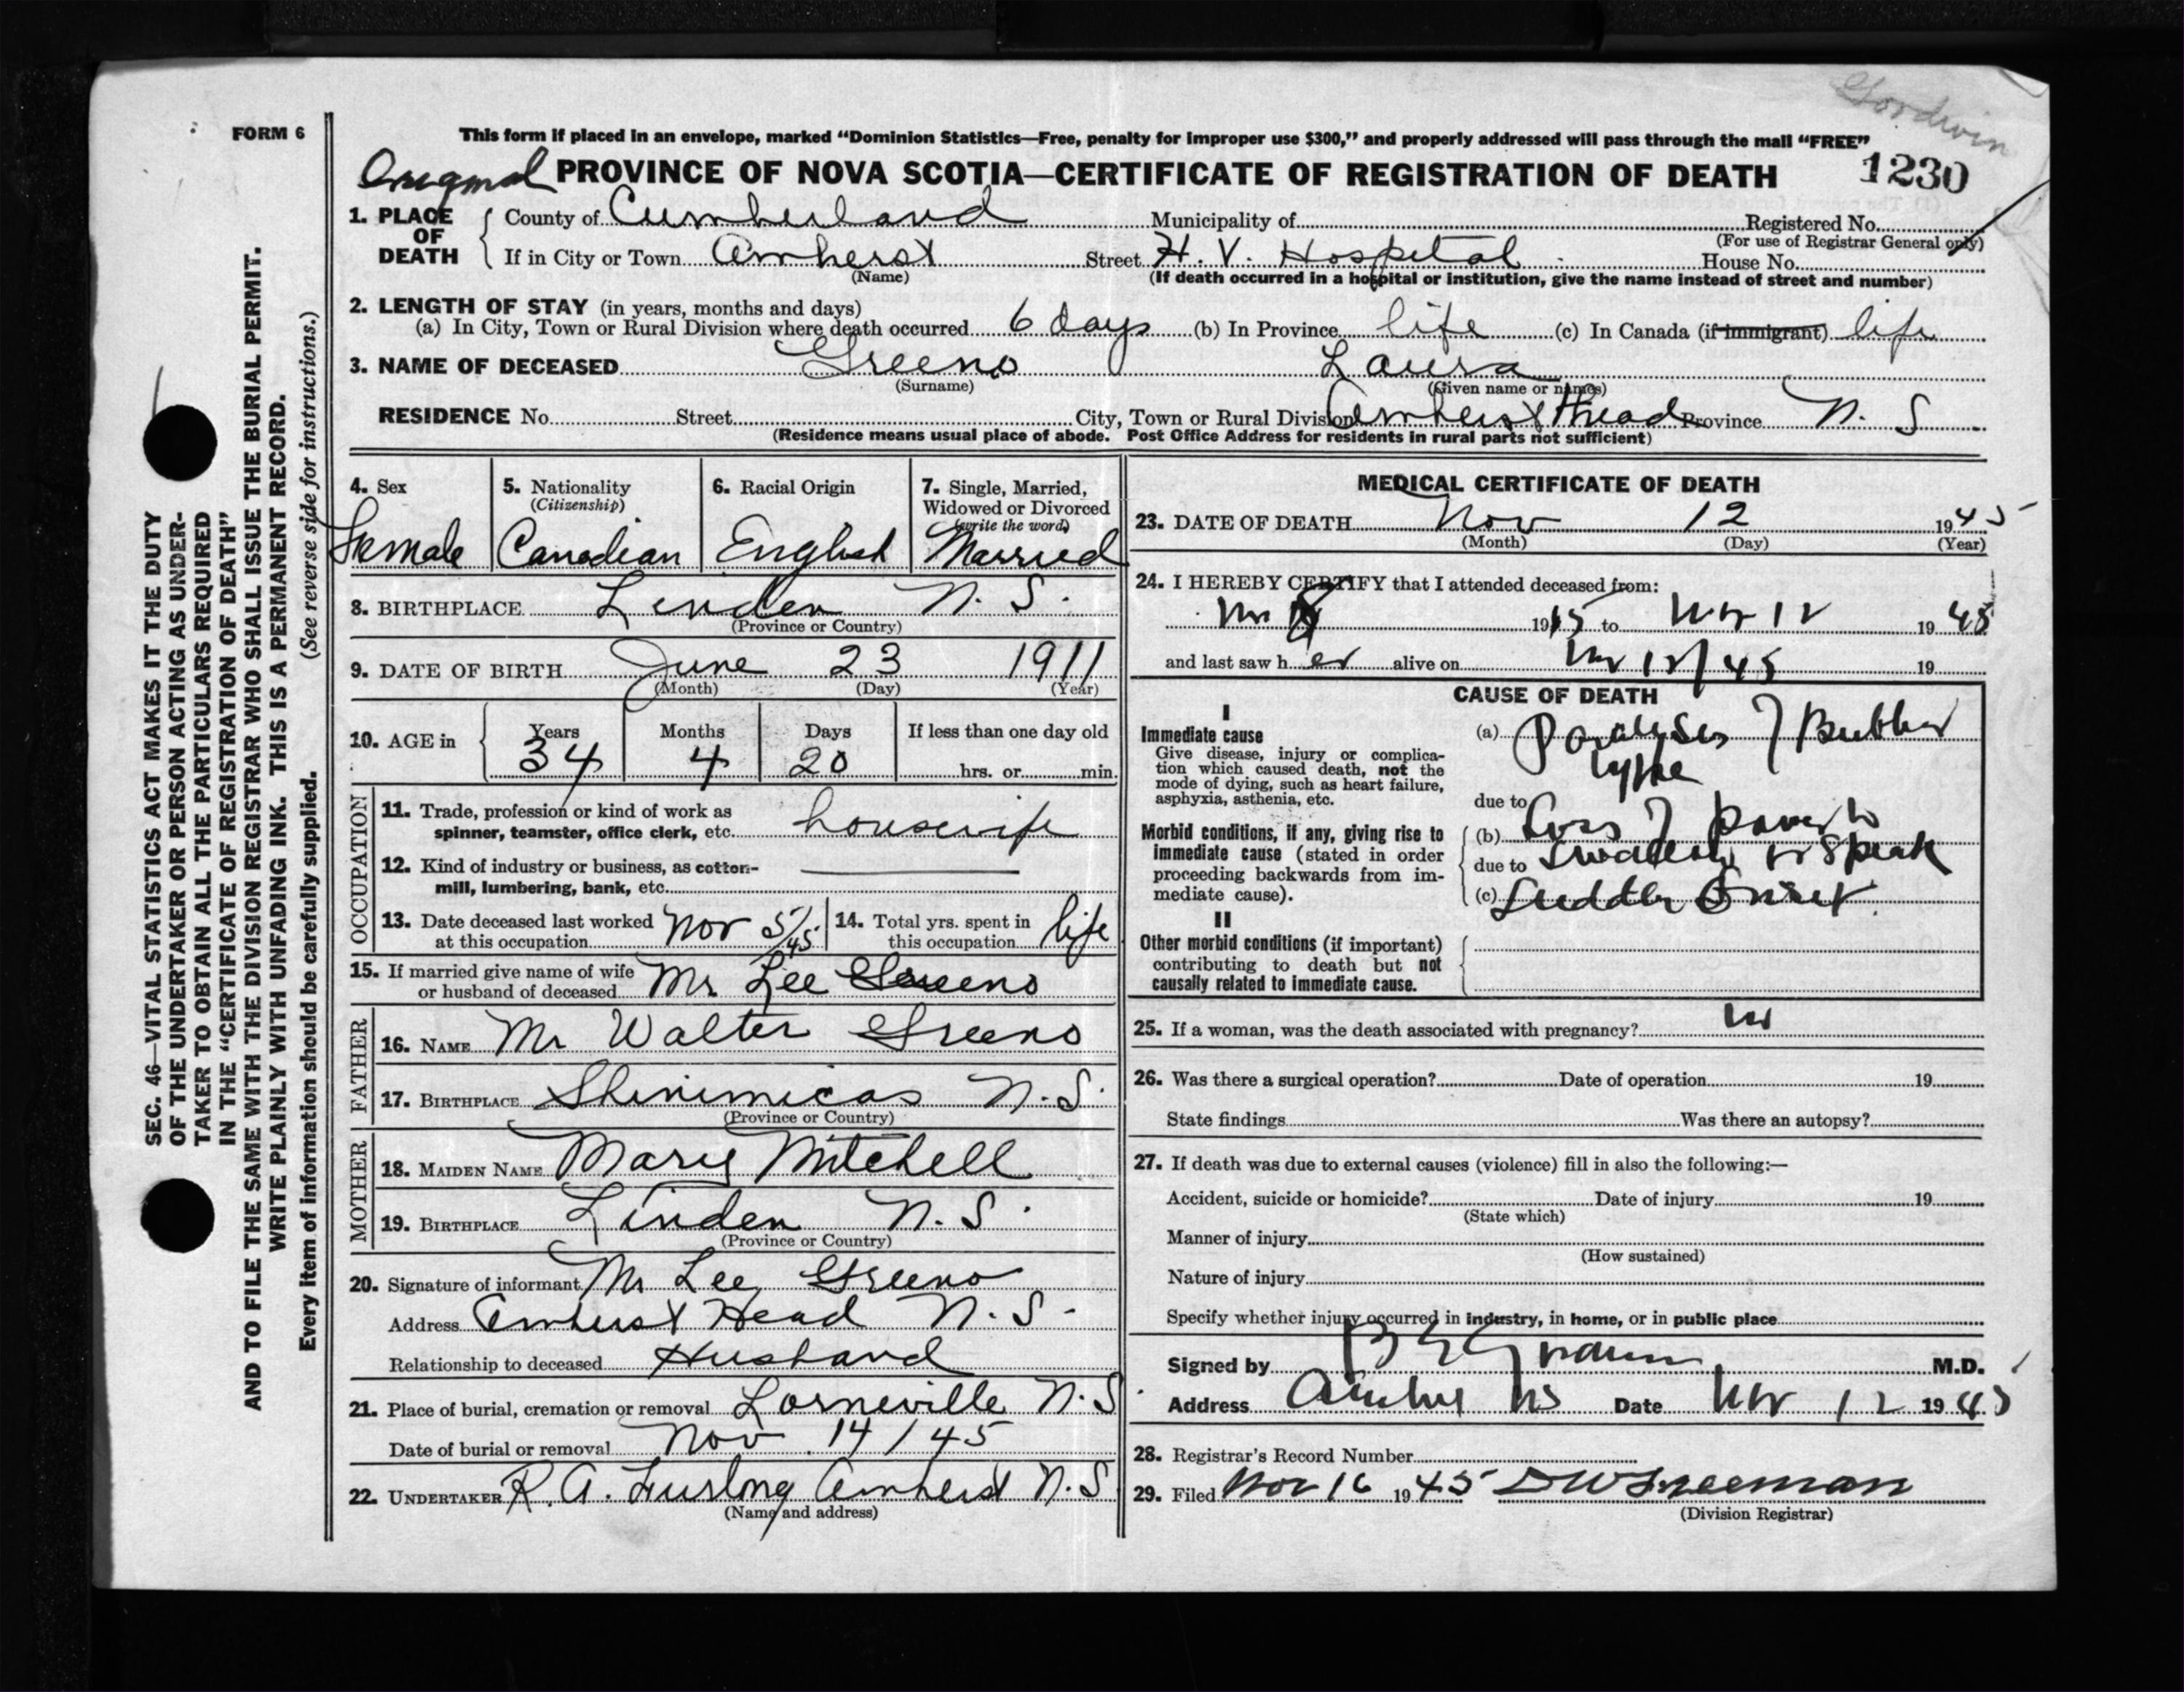 Goodwin
FORM 6
This form if placed in an envelope, marked “Dominion Statistics—Free, penalty for improper use $300,” and properly addressed will pass through the mail “FREE”
Original PROVINCE OF NOVA SCOTIA—CERTIFICATE OF REGISTRATION OF DEATH 1230
1. PLACE OF DEATH
County of Cumberland Municipality of Registered No.
(For use of Registrar General only)
If in City or Town Amherst Street H. V. Hospital House No.
(Name) (If death occurred in a hospital or institution, give the name instead of street and number)
2. LENGTH OF STAY (in years, months and days)
(a) In City, Town or Rural Division where death occurred 6 days (b) In Province life (c) In Canada (if immigrant) life
3. NAME OF DECEASED Greeno Laura
(Surname) (Given name or names)
RESIDENCE No. Street City, Town or Rural Division Amherst Head Province N. S
(Residence means usual place of abode. Post Office Address for residents in rural parts not sufficient)
4. Sex
Female
5. Nationality
(Citizenship)
Canadian
6. Racial Origin
English
7. Single, Married,
Widowed or Divorced
(write the word)
Married
8. BIRTHPLACE Linden N. S.
(Province or Country)
9. DATE OF BIRTH June 23 1911
(Month) (Day) (Year)
10. AGE in
Years Months Days If less than one day old
34 4 20 hrs. or min.
OCCUPATION
11. Trade, profession or kind of work as
spinner, teamster, office clerk, etc. housewife
12. Kind of industry or business, as cotton-
mill, lumbering, bank, etc.
13. Date deceased last worked
at this occupation Nov 5/45
14. Total yrs. spent in
this occupation life
15. If married give name of wife
or husband of deceased Mr Lee Greeno
FATHER
16. NAME Mr Walter Greeno
17. BIRTHPLACE Shinimicas N. S.
(Province or Country)
MOTHER
18. MAIDEN NAME Mary Mitchell
19. BIRTHPLACE Linden N. S.
(Province or Country)
20. Signature of informant Mr Lee Greeno
Address Amherst Head N. S.
Relationship to deceased Husband
21. Place of burial, cremation or removal Lorneville N. S.
Date of burial or removal Nov 14/45
22. UNDERTAKER R. A. Furlong Amherst N. S
(Name and address)
MEDICAL CERTIFICATE OF DEATH
23. DATE OF DEATH Nov 12 1945
(Month) (Day) (Year)
24. I HEREBY CERTIFY that I attended deceased from:
19 45 to Nov 12 19 45
and last saw her alive on Nov 12/45 19
CAUSE OF DEATH
I
Immediate cause
Give disease, injury or complica-
tion which caused death, not the
mode of dying, such as heart failure,
asphyxia, asthenia, etc.
(a) Paralysis of Bulbar
type
due to
Morbid conditions, if any, giving rise to
immediate cause (stated in order
proceeding backwards from im-
mediate cause).
(b) Loss of power to
due to swallow or speak
(c) Sudden Onset.
II
Other morbid conditions (if important)
contributing to death but not
causally related to immediate cause.
25. If a woman, was the death associated with pregnancy? no
26. Was there a surgical operation? Date of operation 19
State findings Was there an autopsy?
27. If death was due to external causes (violence) fill in also the following:—
Accident, suicide or homicide? Date of injury 19
(State which)
Manner of injury
(How sustained)
Nature of injury
Specify whether injury occurred in industry, in home, or in public place
Signed by M.D.
Address Amherst NS Date Nov 12 1945
28. Registrar's Record Number
29. Filed Nov 16 1945 D W Freeman
(Division Registrar)
SEC. 46—VITAL STATISTICS ACT MAKES IT THE DUTY
OF THE UNDERTAKER OR PERSON ACTING AS UNDER-
TAKER TO OBTAIN ALL THE PARTICULARS REQUIRED
IN THE “CERTIFICATE OF REGISTRATION OF DEATH”
AND TO FILE THE SAME WITH THE DIVISION REGISTRAR WHO SHALL ISSUE THE BURIAL PERMIT.
WRITE PLAINLY WITH UNFADING INK. THIS IS A PERMANENT RECORD.
Every item of information should be carefully supplied. (See reverse side for instructions.)